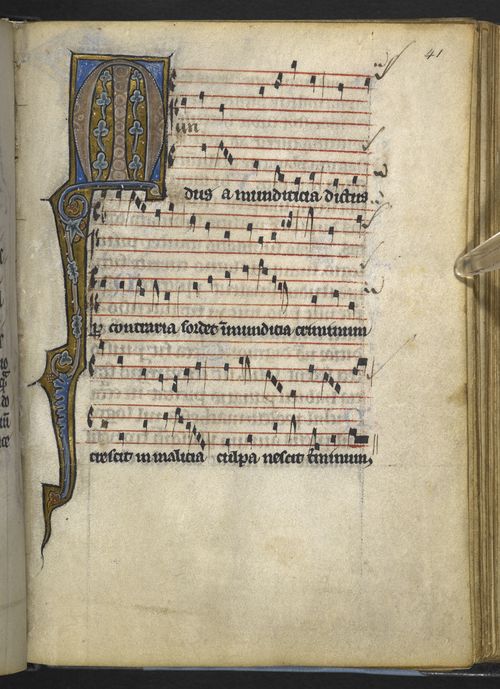 41
Mun
dus a mundicia dictus
per contraria sordet inmundicia criminum
crescit in malicia culpa nescit terminum